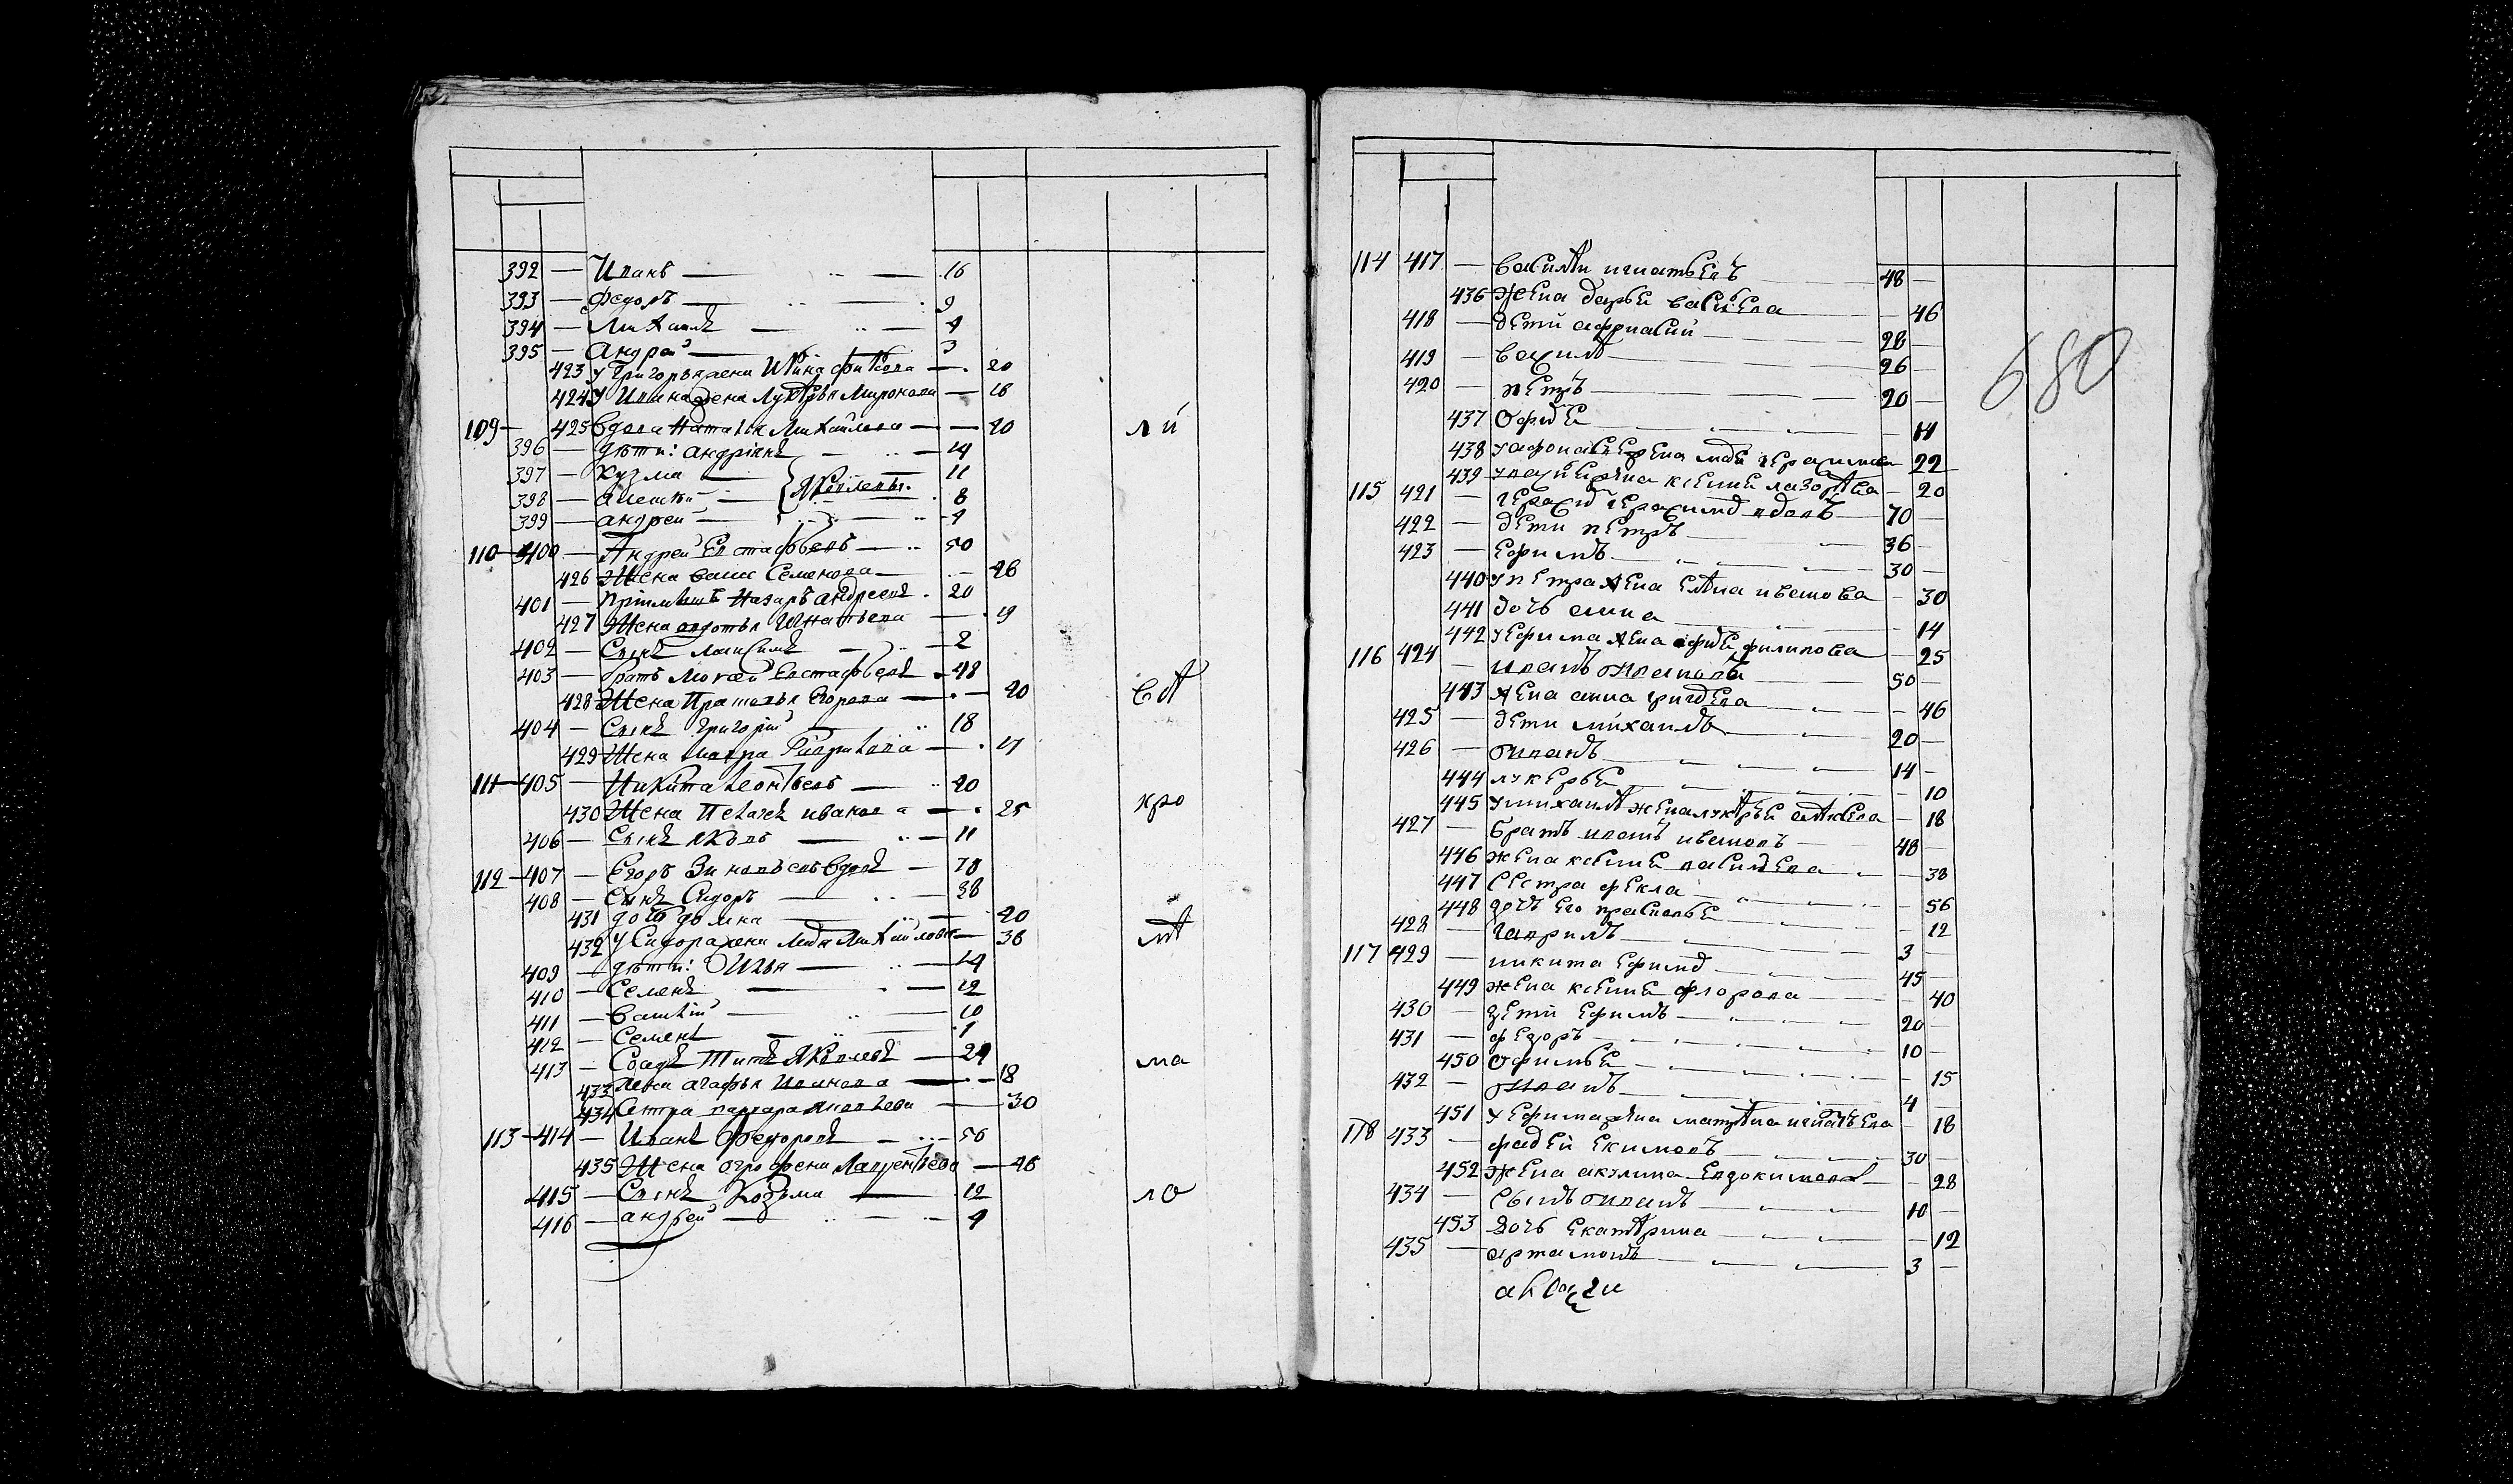 392 — Иванъ — 16
393 — Федоръ — 9
394 — Михаилъ — 4
395 — Андрей — 3
423 У Григорья жена — 20
424 У Ивана жена Лукерья Миронова — 18
109 — 425 Вдова Наталья Михайлова — 40
396 — дѣти: андріянъ — 14
397 — Кузма — 11
398 — алексѣй — Яковлевы. 8
399 — андрей — 4
110 — 400 — Андрей Евстафьевъ — 50
426 Жена Семенова — 48
401 — Назаръ андреевъ — 20
427 Жена авдотья Игнатьева — 19
402 — Сынъ Максимъ — 2
403 — Братъ Мокей Евстафьевъ — 48
428 Жена Прасковья Егорова — 40
404 — Сынъ Григорій — 18
429 Жена Мавра Гаврилова — 17
111 — 405 — Никита Леонтьевъ — 40
430 Жена Пелагея иванова — 25
406 — Сынъ Яковъ — 11
112 — 407 — Егоръ Зиновьевъ Вдовъ — 70
408 — Сынъ Сидоръ — 38
431 дочь домна — 20
432 У Сидора жена Михайлова — 38
409 — дѣти: Илья — 14
410 — Семенъ — 12
411 — Василій — 10
412 — Семенъ — 1
413 — Титъ Яковлевъ — 24
433 Жена агафья Иванова — 18
434 Сестра варвара Яковлева — 30
113 — 414 — Иванъ Федоровъ — 56
435 Жена огрофена Лаврентьева — 48
415 — Сынъ Козьма — 12
416 — андрей — 4
лй
вѣ
кро
ма
ло
114 417 — василей игнатьевъ — 48
436 жена дарья васильева — 46
418 — дети афонасий — 28
419 — василей — 26
420 — петръ — 20
437 офимья — 14
438 у афонасья жена герасимова 22
439 у василья жена ксения лазорева — 20
115 421 — герасимъ герасимовъ вдовъ — 70
422 — дети петръ — 36
423 — ефимъ — 30
440 у петра жена елена иванова — 30
441 дочь анна — 14
442 у ефима жена филипова — 25
116 424 — иванъ ивановъ — 50
443 жена анна григорьева — 46
425 — дети михаилъ — 20
426 — иванъ — 14
444 лукерья — 10
445 у михаила жена лукерья алексеева — 18
427 — братъ иванъ ивановъ — 48
446 жена ксения васильева — 38
447 сестра фекла — 56
448 дочь его прасковья — 12
428 — гаврилъ — 3
117 429 — никита ефимовъ — 45
449 жена ксения флорова — 40
430 — дети ефимъ — 20
431 — федоръ — 10
450 офимья — 15
432 — иванъ — 4
451 у ефима жена матрена игнатьева — 18
118 433 — фадей екимовъ — 30
452 жена акулина евдокимова — 28
434 — сынъ иванъ — 10
453 дочь екатерина — 12
435 — артамонъ — 3
680